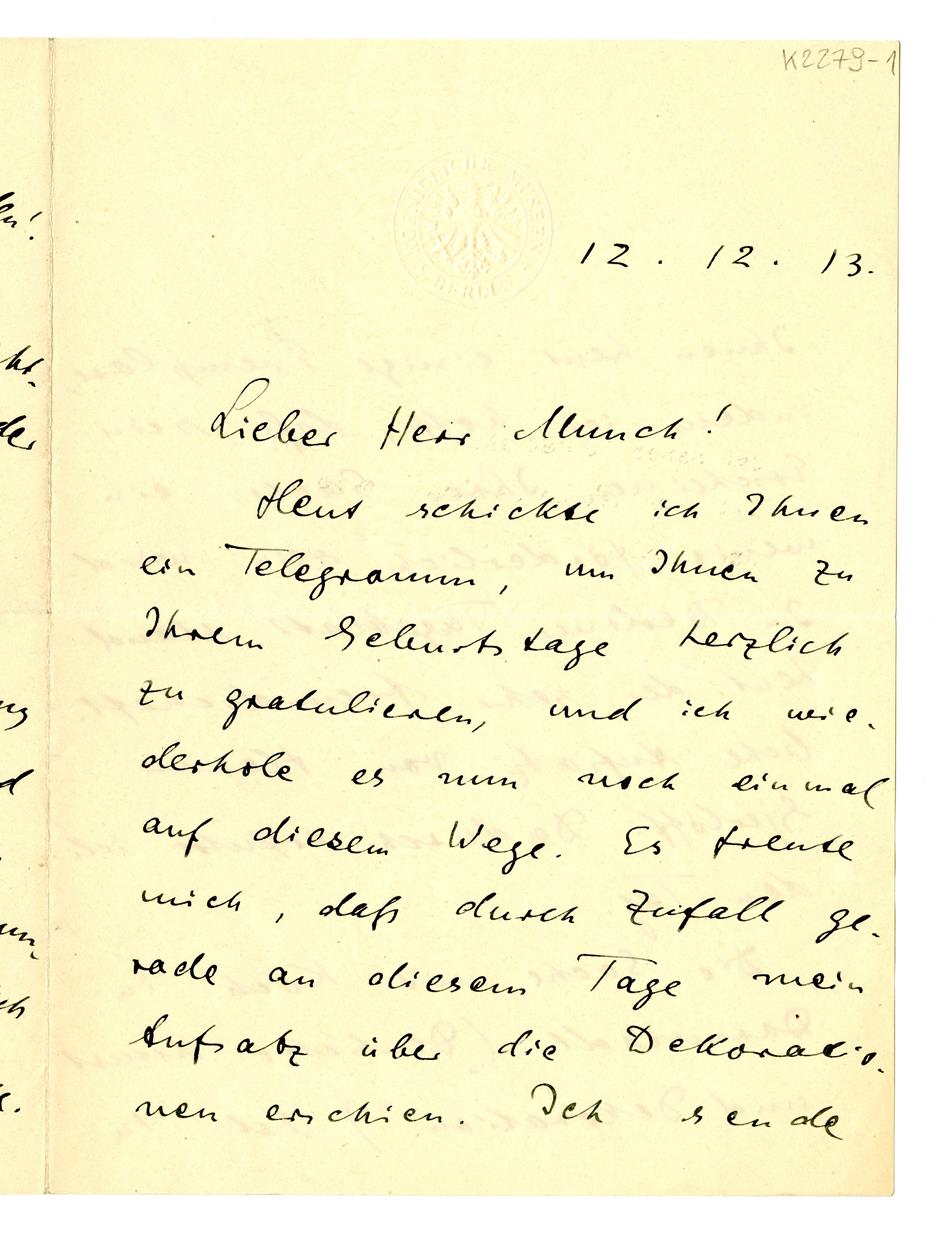 K2279-1
KOENIGLICHE MUSEEN
BERLIN
12. 12. 13.
Lieber Herr Munch!
Heut schickte ich Ihnen
ein Telegramm, um Ihnen zu
Ihrem Geburtstage herzlich
zu gratulieren, und ich wie-
derhole es nun noch einmal
auf diesem Wege. Es freute
mich, daß durch Zufall ge-
rade an diesem Tage mein
Aufsatz über die Dekoratio-
nen erschien. Ich sende